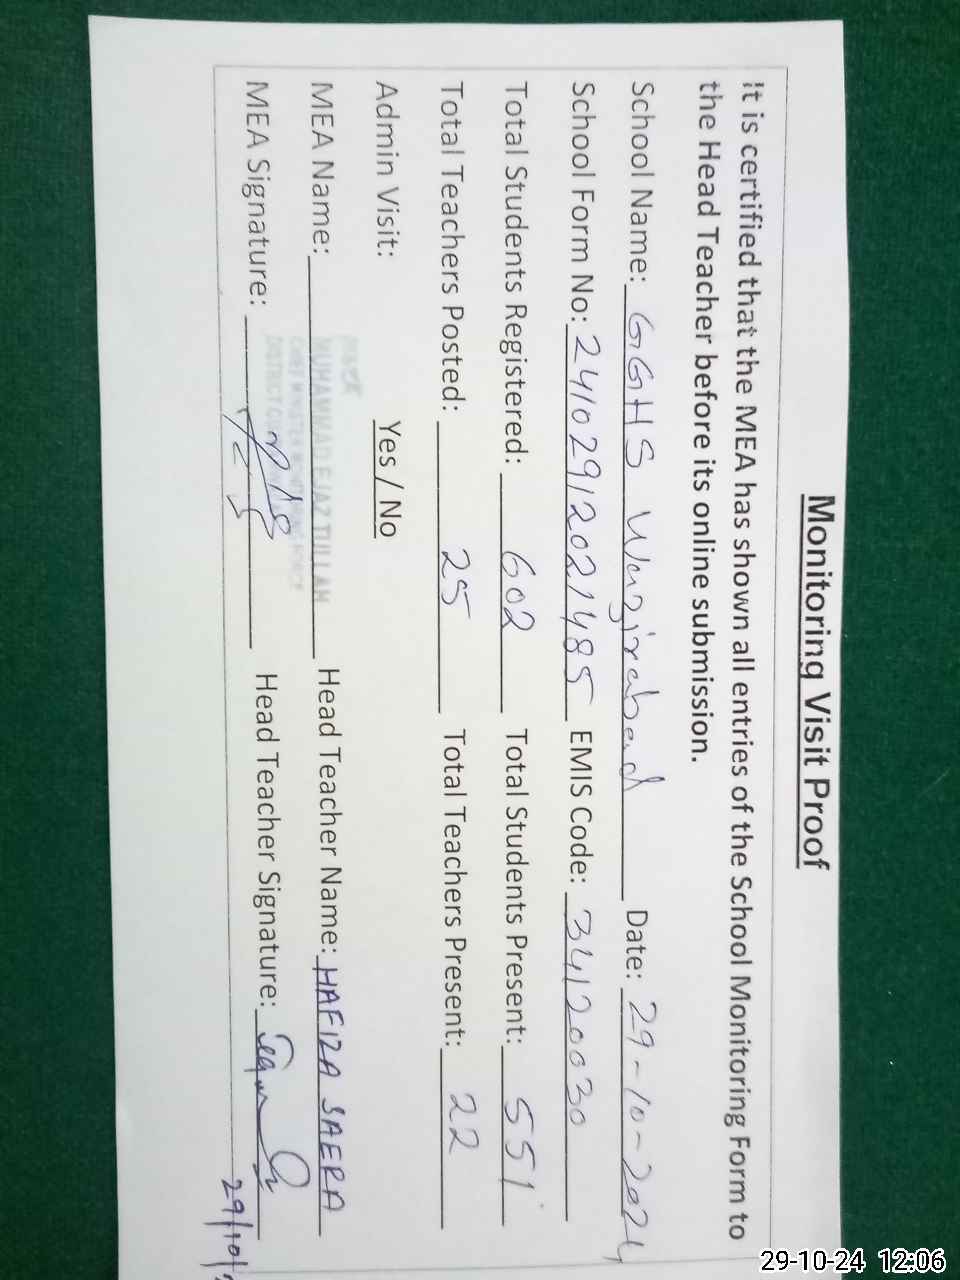 Monitoring Visit Proof
It is certified that the MEA has shown all entries of the School Monitoring Form to
the Head Teacher before its online submission.
School Name: GGHS Wazirabad Date: 29-10-2024
School Form No: 24102912021485 EMIS Code: 34120030
Total Students Registered: 602 Total Students Present: 551
Total Teachers Posted: 25 Total Teachers Present: 22
Admin Visit: Yes / No
MEA Name: MUHAMMAD EJAZ TULLAH Head Teacher Name: HAFIZA SAERA
CHIEF MINISTER MONITORING FORCE
DISTRICT
MEA Signature: Head Teacher Signature:
29/10/
29-10-24 12:06